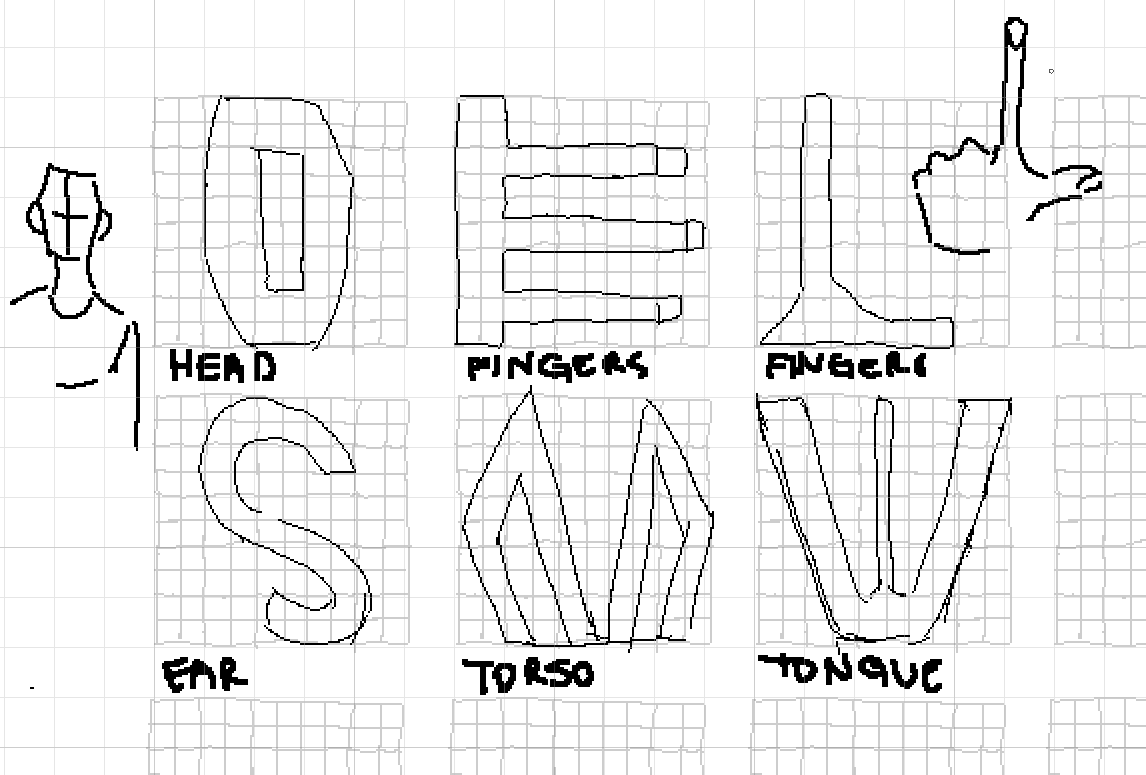 O E L
HEAD FINGERS FINGERS
S M W
EAR TORSO TONGUE